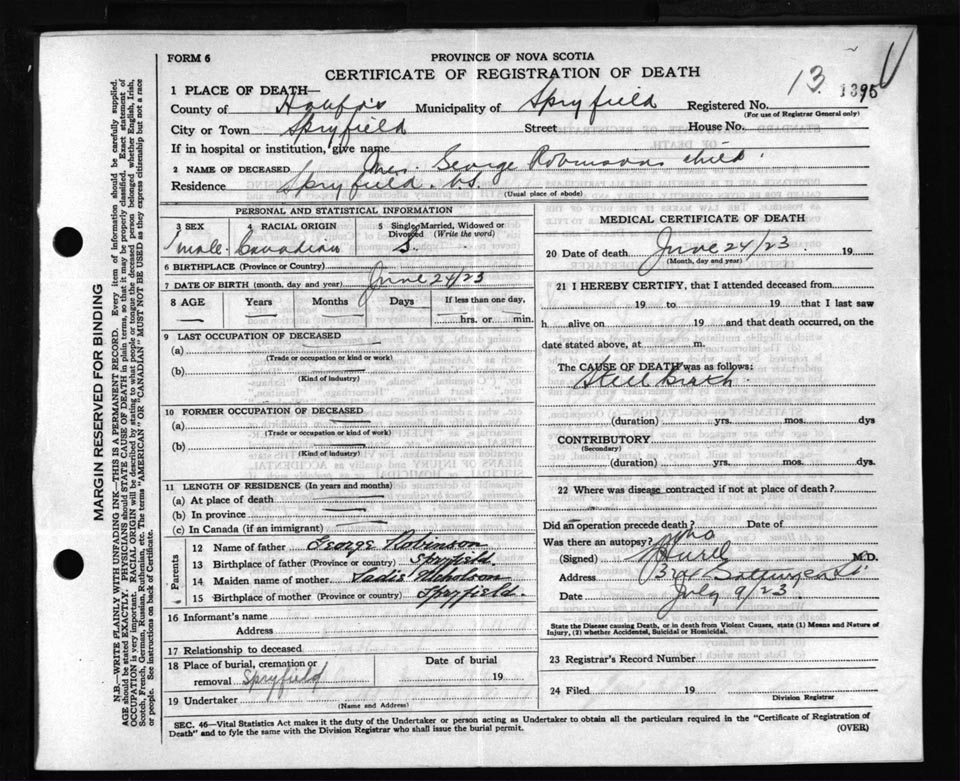 FORM 6
PROVINCE OF NOVA SCOTIA
CERTIFICATE OF REGISTRATION OF DEATH
13
1395
1 PLACE OF DEATH—
County of Halifax Municipality of Spryfield Registered No.
(For use of Registrar General only)
City or Town Spryfield Street House No.
If in hospital or institution, give name
2 NAME OF DECEASED Mrs. George Robinsons child.
Residence Spryfield. N.S.
(Usual place of abode)
PERSONAL AND STATISTICAL INFORMATION
3 SEX 4 RACIAL ORIGIN 5 Single, Married, Widowed or Divorced (Write the word)
male. Canadian S.
6 BIRTHPLACE (Province or Country)
7 DATE OF BIRTH (month, day and year) June 24/23
8 AGE Years Months Days If less than one day,
hrs. or min.
9 LAST OCCUPATION OF DECEASED
(a)
(Trade or occupation or kind or work)
(b)
(Kind of industry)
10 FORMER OCCUPATION OF DECEASED
(a)
(Trade or occupation or kind of work)
(b)
(Kind of industry)
11 LENGTH OF RESIDENCE (In years and months)
(a) At place of death
(b) In province
(c) In Canada (if an immigrant)
Parents
12 Name of father George Robinson
13 Birthplace of father (Province or country) Spryfield.
14 Maiden name of mother Sadie Nicholson
15 Birthplace of mother (Province or country) Spryfield.
16 Informant's name
Address
17 Relationship to deceased
18 Place of burial, cremation or removal Spryfield Date of burial 19
19 Undertaker
(Name and Address)
MEDICAL CERTIFICATE OF DEATH
20 Date of death June 24/23. 19
(Month, day and year)
21 I HEREBY CERTIFY, that I attended deceased from
19 to 19 that I last saw
h alive on 19 and that death occurred, on the
date stated above, at m.
The CAUSE OF DEATH was as follows:
Still birth.
(duration) yrs. mos. dys
CONTRIBUTORY
(Secondary)
(duration) yrs. mos. dys.
22 Where was disease contracted if not at place of death?
Did an operation precede death? Date of
Was there an autopsy? no
(Signed) M.D.
Address
Date July 9/23.
State the Disease causing Death, or in death from Violent Causes, state (1) Means and Nature of
Injury, (2) whether Accidental, Suicidal or Homicidal.
23 Registrar's Record Number
24 Filed 19
Division Registrar
SEC. 46—Vital Statistics Act makes it the duty of the Undertaker or person acting as Undertaker to obtain all the particulars required in the "Certificate of Registration of
Death" and to fyle the same with the Division Registrar who shall issue the burial permit.
(OVER)
MARGIN RESERVED FOR BINDING
N.B.—WRITE PLAINLY WITH UNFADING INK—THIS IS A PERMANENT RECORD. Every item of information should be carefully supplied.
AGE should be stated EXACTLY. PHYSICIANS should STATE CAUSE OF DEATH in plain terms, so that it may be properly classified. Exact statement of
OCCUPATION is very important. RACIAL ORIGIN will be described by stating to what people or tongue the deceased person belonged whether English, Irish,
Scotch, French, German, Russian, Ruthenian, etc. The terms "AMERICAN" OR "CANADIAN" MUST NOT BE USED as they express citizenship but not a race
or people. See instructions on back of Certificate.